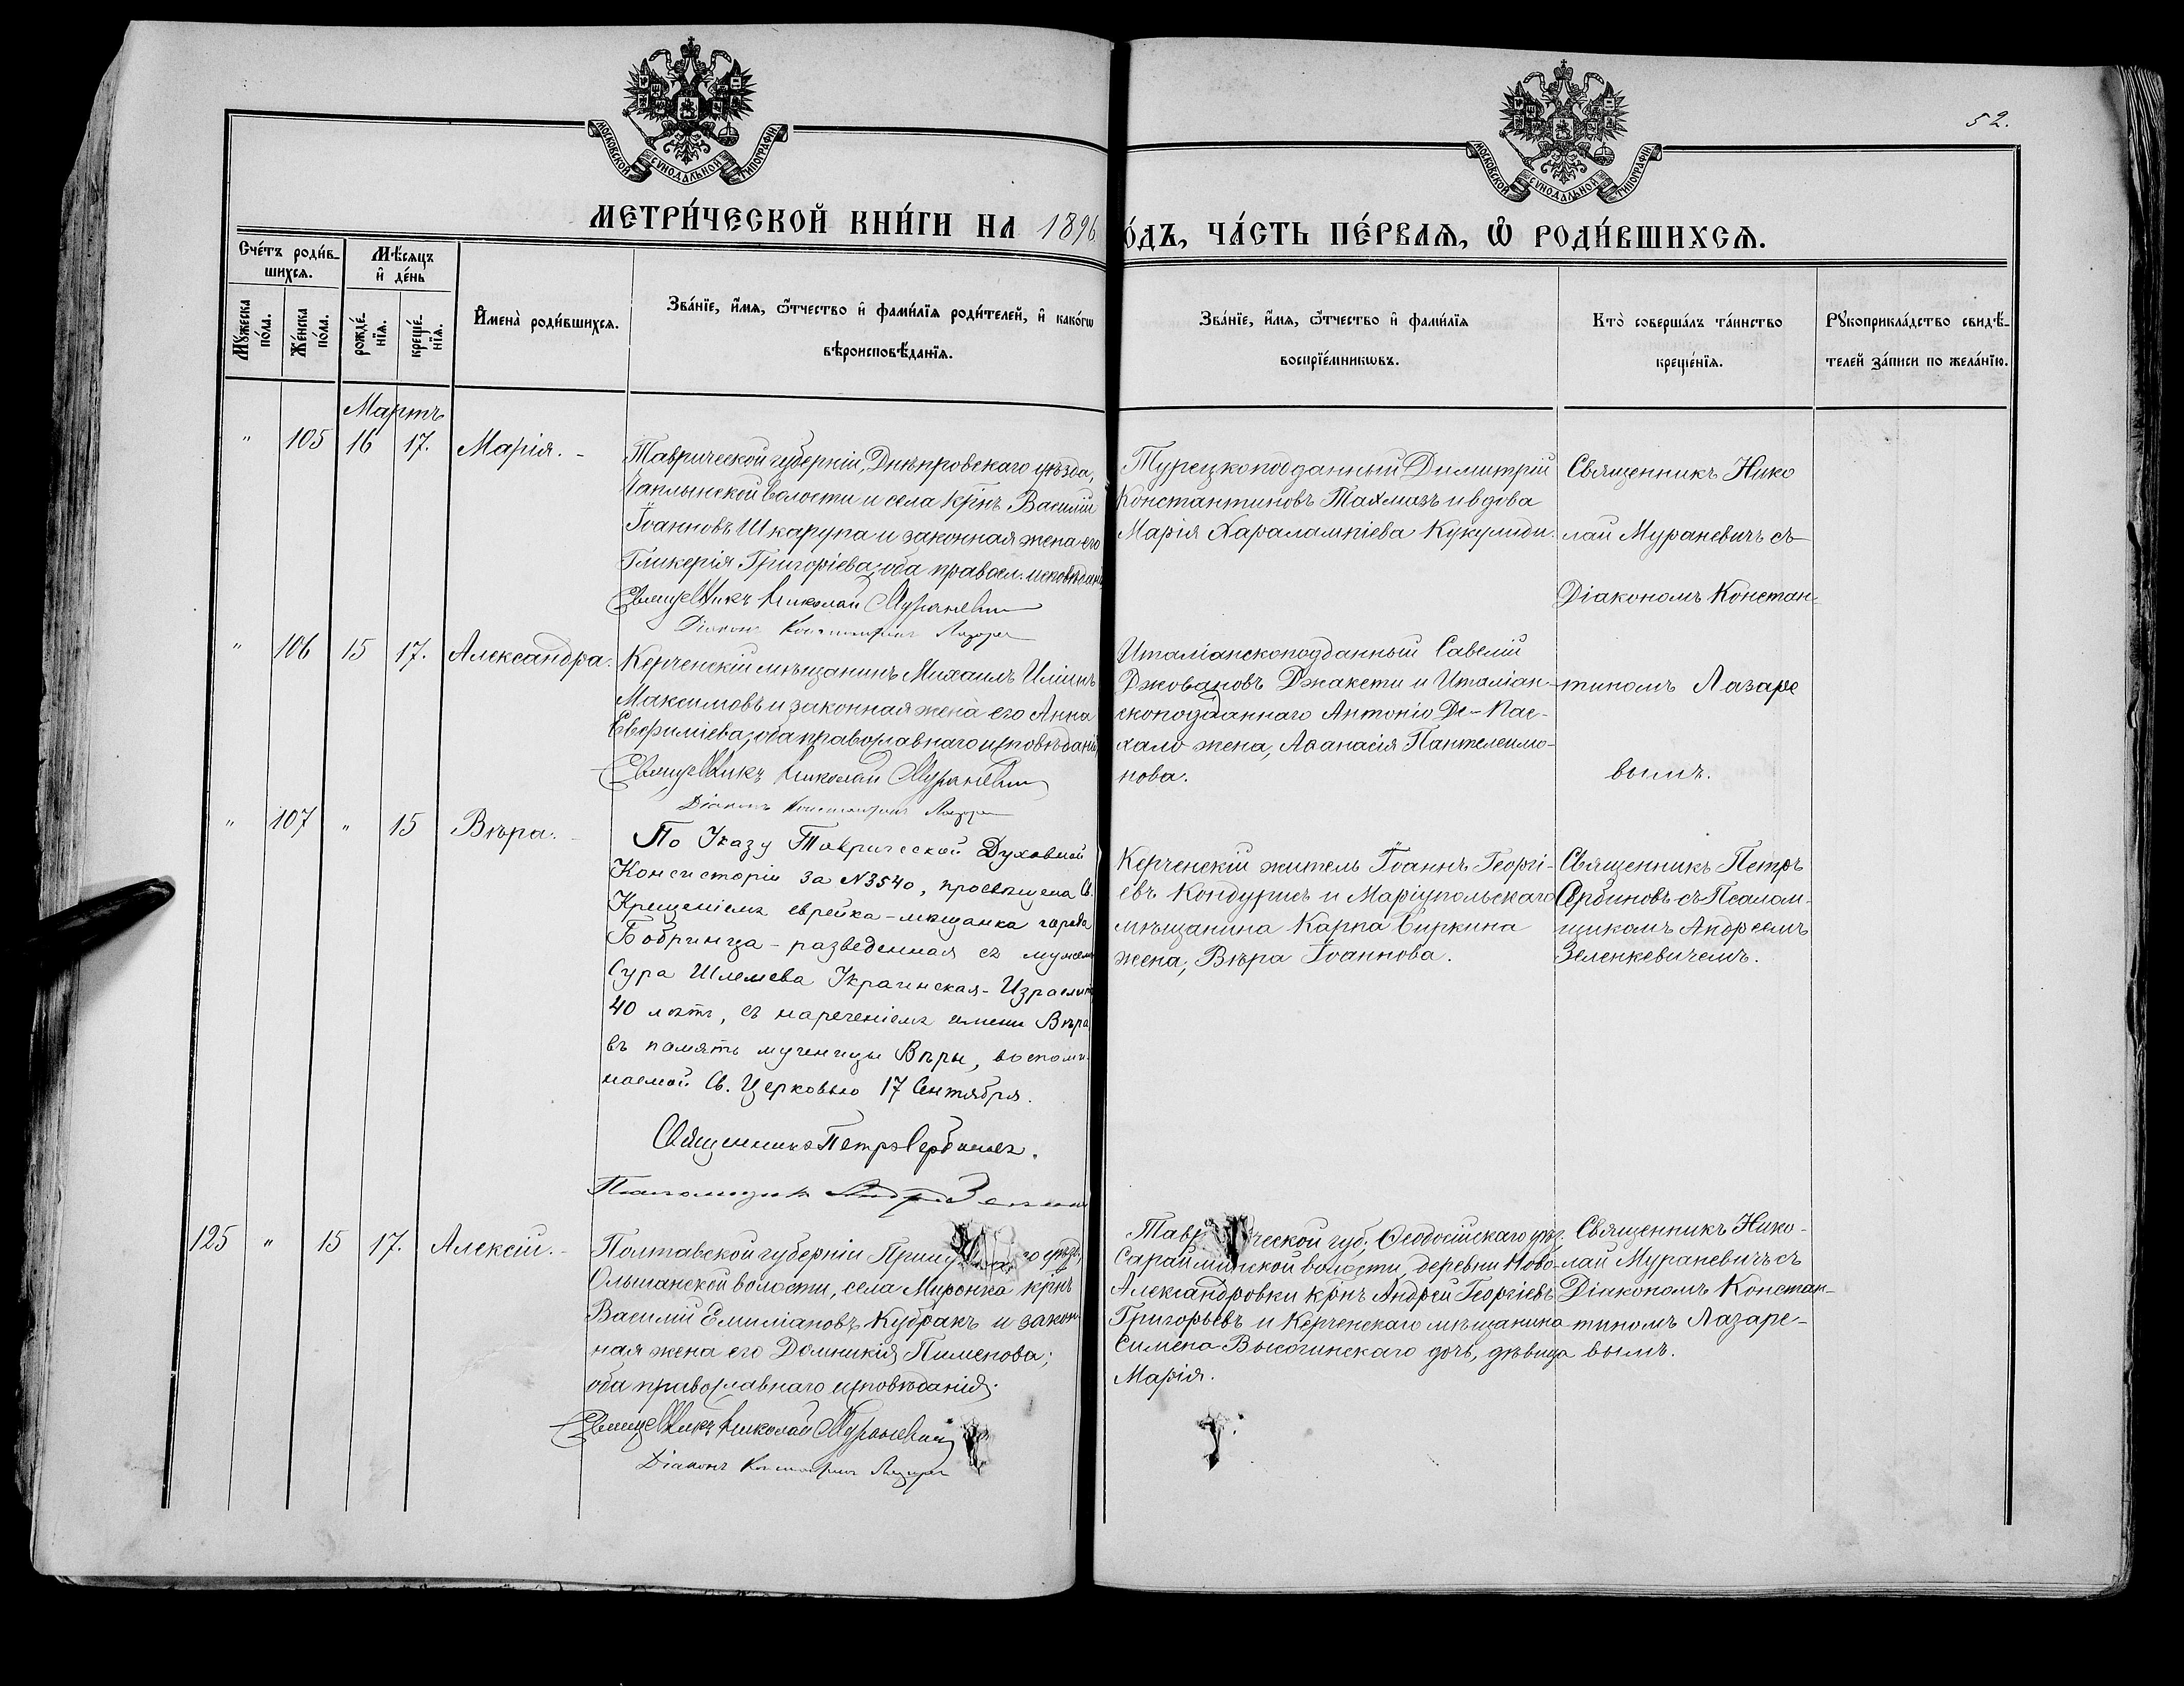 МОСКОВСКОЙ СѴНОДАЛЬНОЙ ТИПОГРАФІИ
МОСКОВСКОЙ СѴНОДАЛЬНОЙ ТИПОГРАФІИ
52.
МЕТРИ́ЧЕСКОЙ КНИ́ГИ НА 1896
О́ДЪ, ЧА́СТЬ ПЕ́РВАѦ, Ѡ҆ РОДИ́ВШИХСѦ.
Сче́тъ роди́в-
шихсѧ.
Мѣ́сѧцъ
и҆ де́нь
Мꙋ́жеска
по́ла.
Же́нска
по́ла.
рожде́-
нїѧ.
креще́-
нїѧ.
И҆мена̀ роди́вшихсѧ.
Зва́нїе, и҆́мѧ, ѻ҆́тчество и҆ фами́лїѧ роди́телей, и҆ како́гѡ
вѣроисповѣ́данїѧ.
Зва́нїе, и҆́мѧ, ѻ҆́тчество и҆ фами́лїѧ
воспрїе́мникѡвъ.
Кто̀ соверша́лъ та́инство
креще́нїѧ.
Рꙋкоприкла́дство свидѣ́-
телей за́писи по жела́нїю.
Мартъ
" 105 16 17. Марія. -
Таврической губерніи, Днѣпровскаго уѣзда,
Чаплынской волости и села крнъ Василій
Іоанновъ Шкарупа и законная жена его
Гликерія Григоріева; оба правосл. исповѣданія
Священникъ Николай Мураневичъ
Діаконъ Константинъ Лазаре
Турецкоподданный Димитрій
Константиновъ Тахмазъ и вдова
Марія Харалампіева Кукулиди.
Священникъ Нико
лай Мураневичъ съ
Діакономъ Констан-
тиномъ Лазаре
вымъ.
" 106 15 17. Александра.
Керченскій мѣщанинъ Михаилъ Иліинъ
Максимовъ и законная жена его Анна
Евфиміева; оба православнаго исповѣданія
Священникъ Николай Мураневичъ
Діаконъ Константинъ Лазаре
Италіанскоподданный Савелій
Джовановъ Джакети и Италіан-
скоподданнаго Антоніо Де-Пас-
хало жена, Аѳанасія Пантелеимо-
нова.
" 107 " 15 Вѣра. -
По Указу Таврической Духовной
Консисторіи за №3540, просвѣщена Св.
Крещеніемъ еврейка-мѣщанка города
Бобринца - разведенная съ мужемъ
Сура Шлемева Украинская-
40 лѣтъ, съ нареченіемъ имени Вѣра
въ память мученицы Вѣры, воспоми-
наемой Св. Церковью 17 Сентября.
Священникъ Петръ Сербиновъ.
Псаломщикъ
Керченскій житель Іоаннъ Георгі-
евъ Кондурисъ и Маріупольскаго
мѣщанина Карпа Сиркина
жена, Вѣра Іоаннова.
Священникъ Петръ
Сербиновъ съ Псалом-
щикомъ Андреемъ
Зеленкевичемъ.
125 " 15 17. Алексій. -
Полтавской губерніи го уѣзда,
Ольшанской волости, села Миронка крнъ
Василій Емиліановъ Кубракъ и закон-
ная жена его Домникія Пименова;
оба православнаго исповѣданія.
Священникъ Николай Мураневичъ
Діаконъ Константинъ Лазаре
Таврической губ. Ѳеодосійскаго уѣз.
Сарайминской волости, деревни Ново-
Александровки крнъ Андрей Георгіевъ
Григорьевъ и Керченскаго мѣщанина
Симена Высочинскаго дочь, дѣвица
Марія.
Священникъ Нико-
лай Мураневичъ съ
Діакономъ Констан-
тиномъ Лазаре-
вымъ.